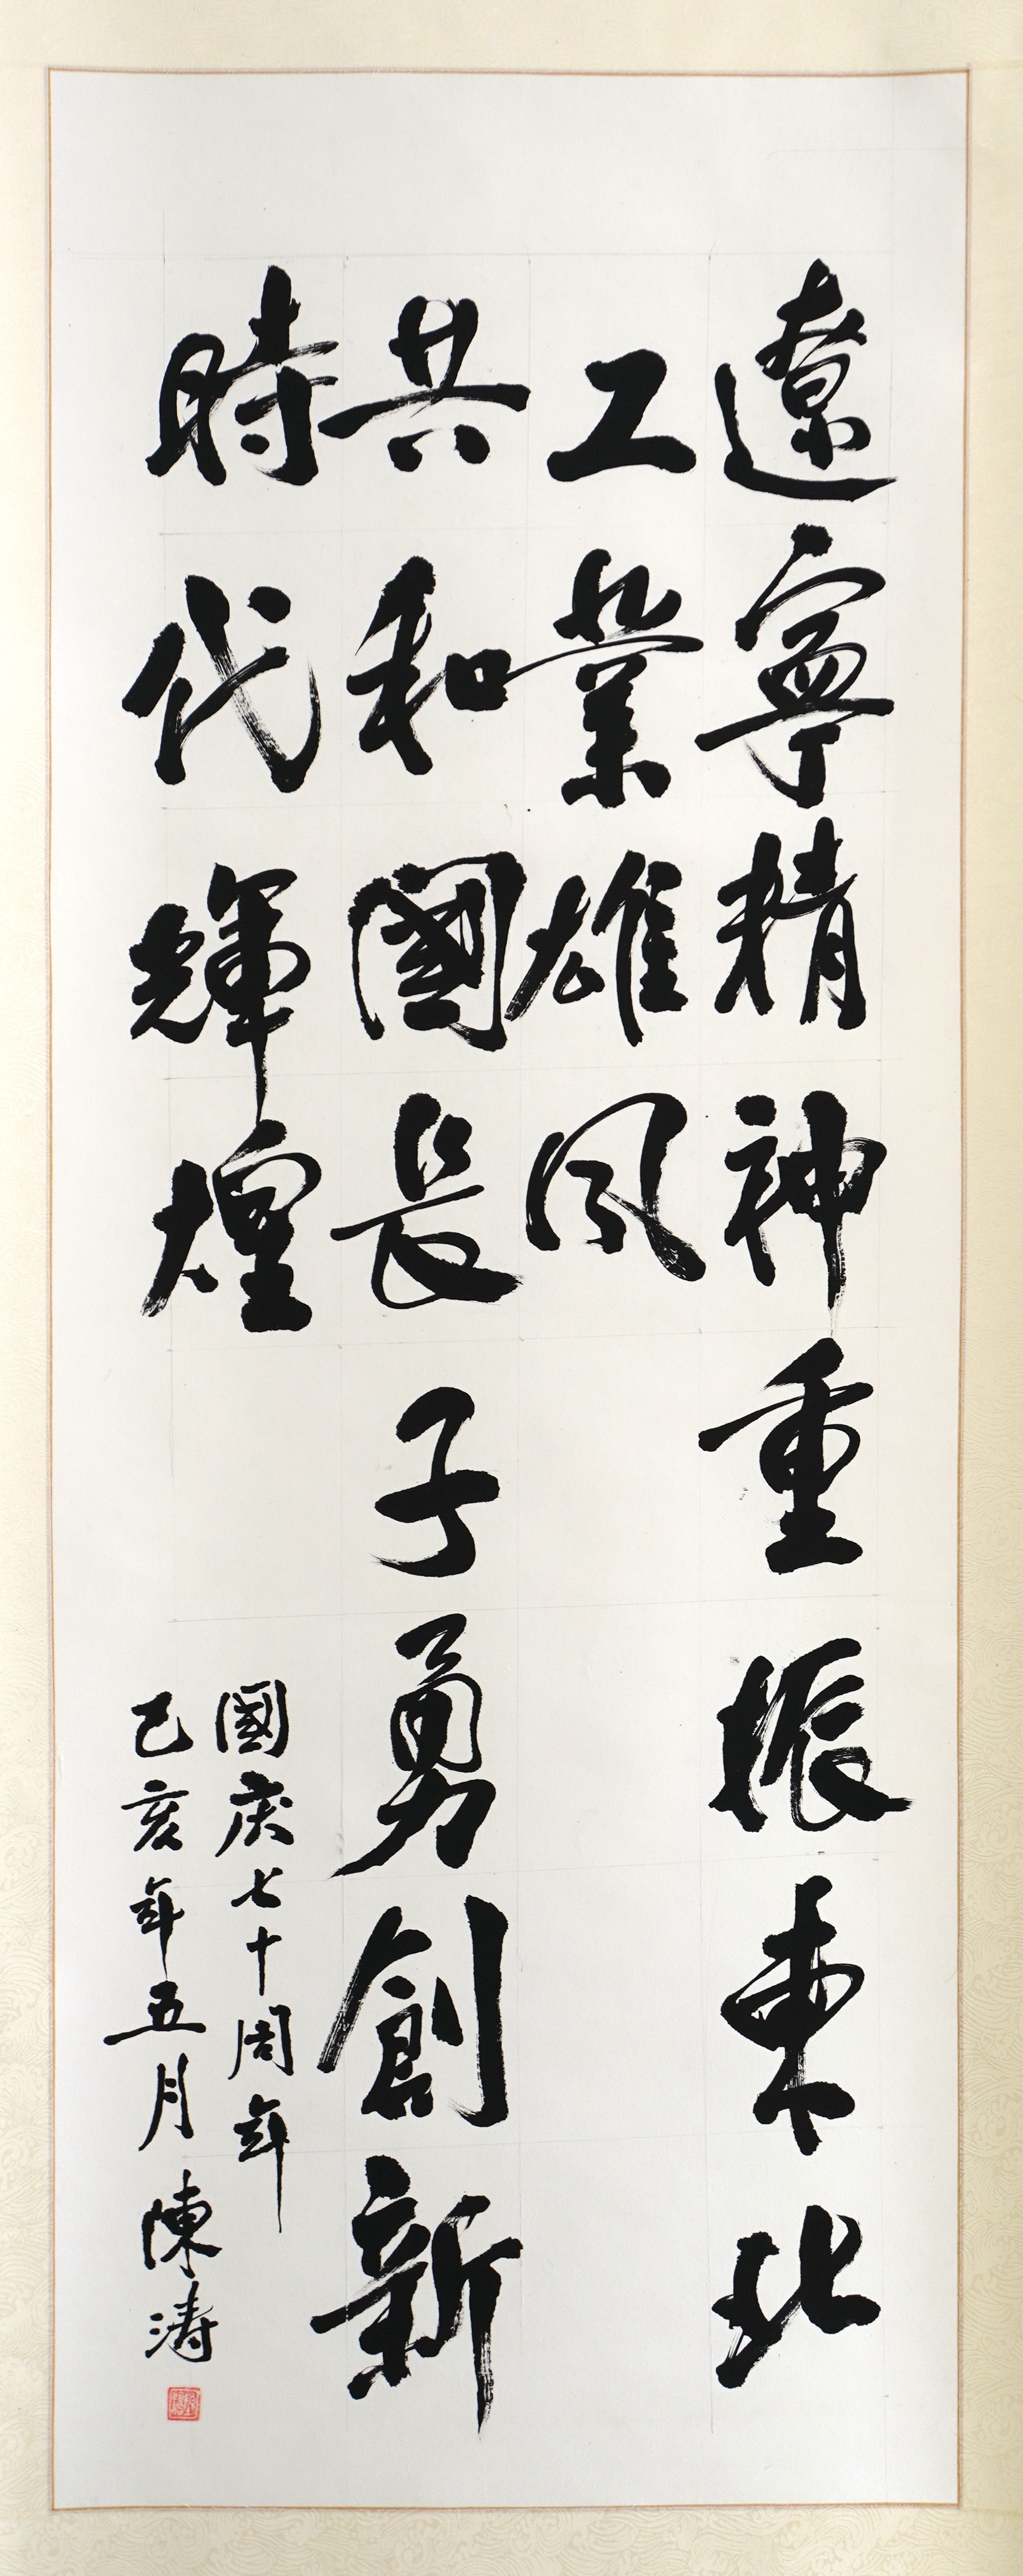 遼寧精神重振東北
工業雄风
共和國長子勇創新
時代輝煌
國庆七十周年
己亥年五月 陳涛